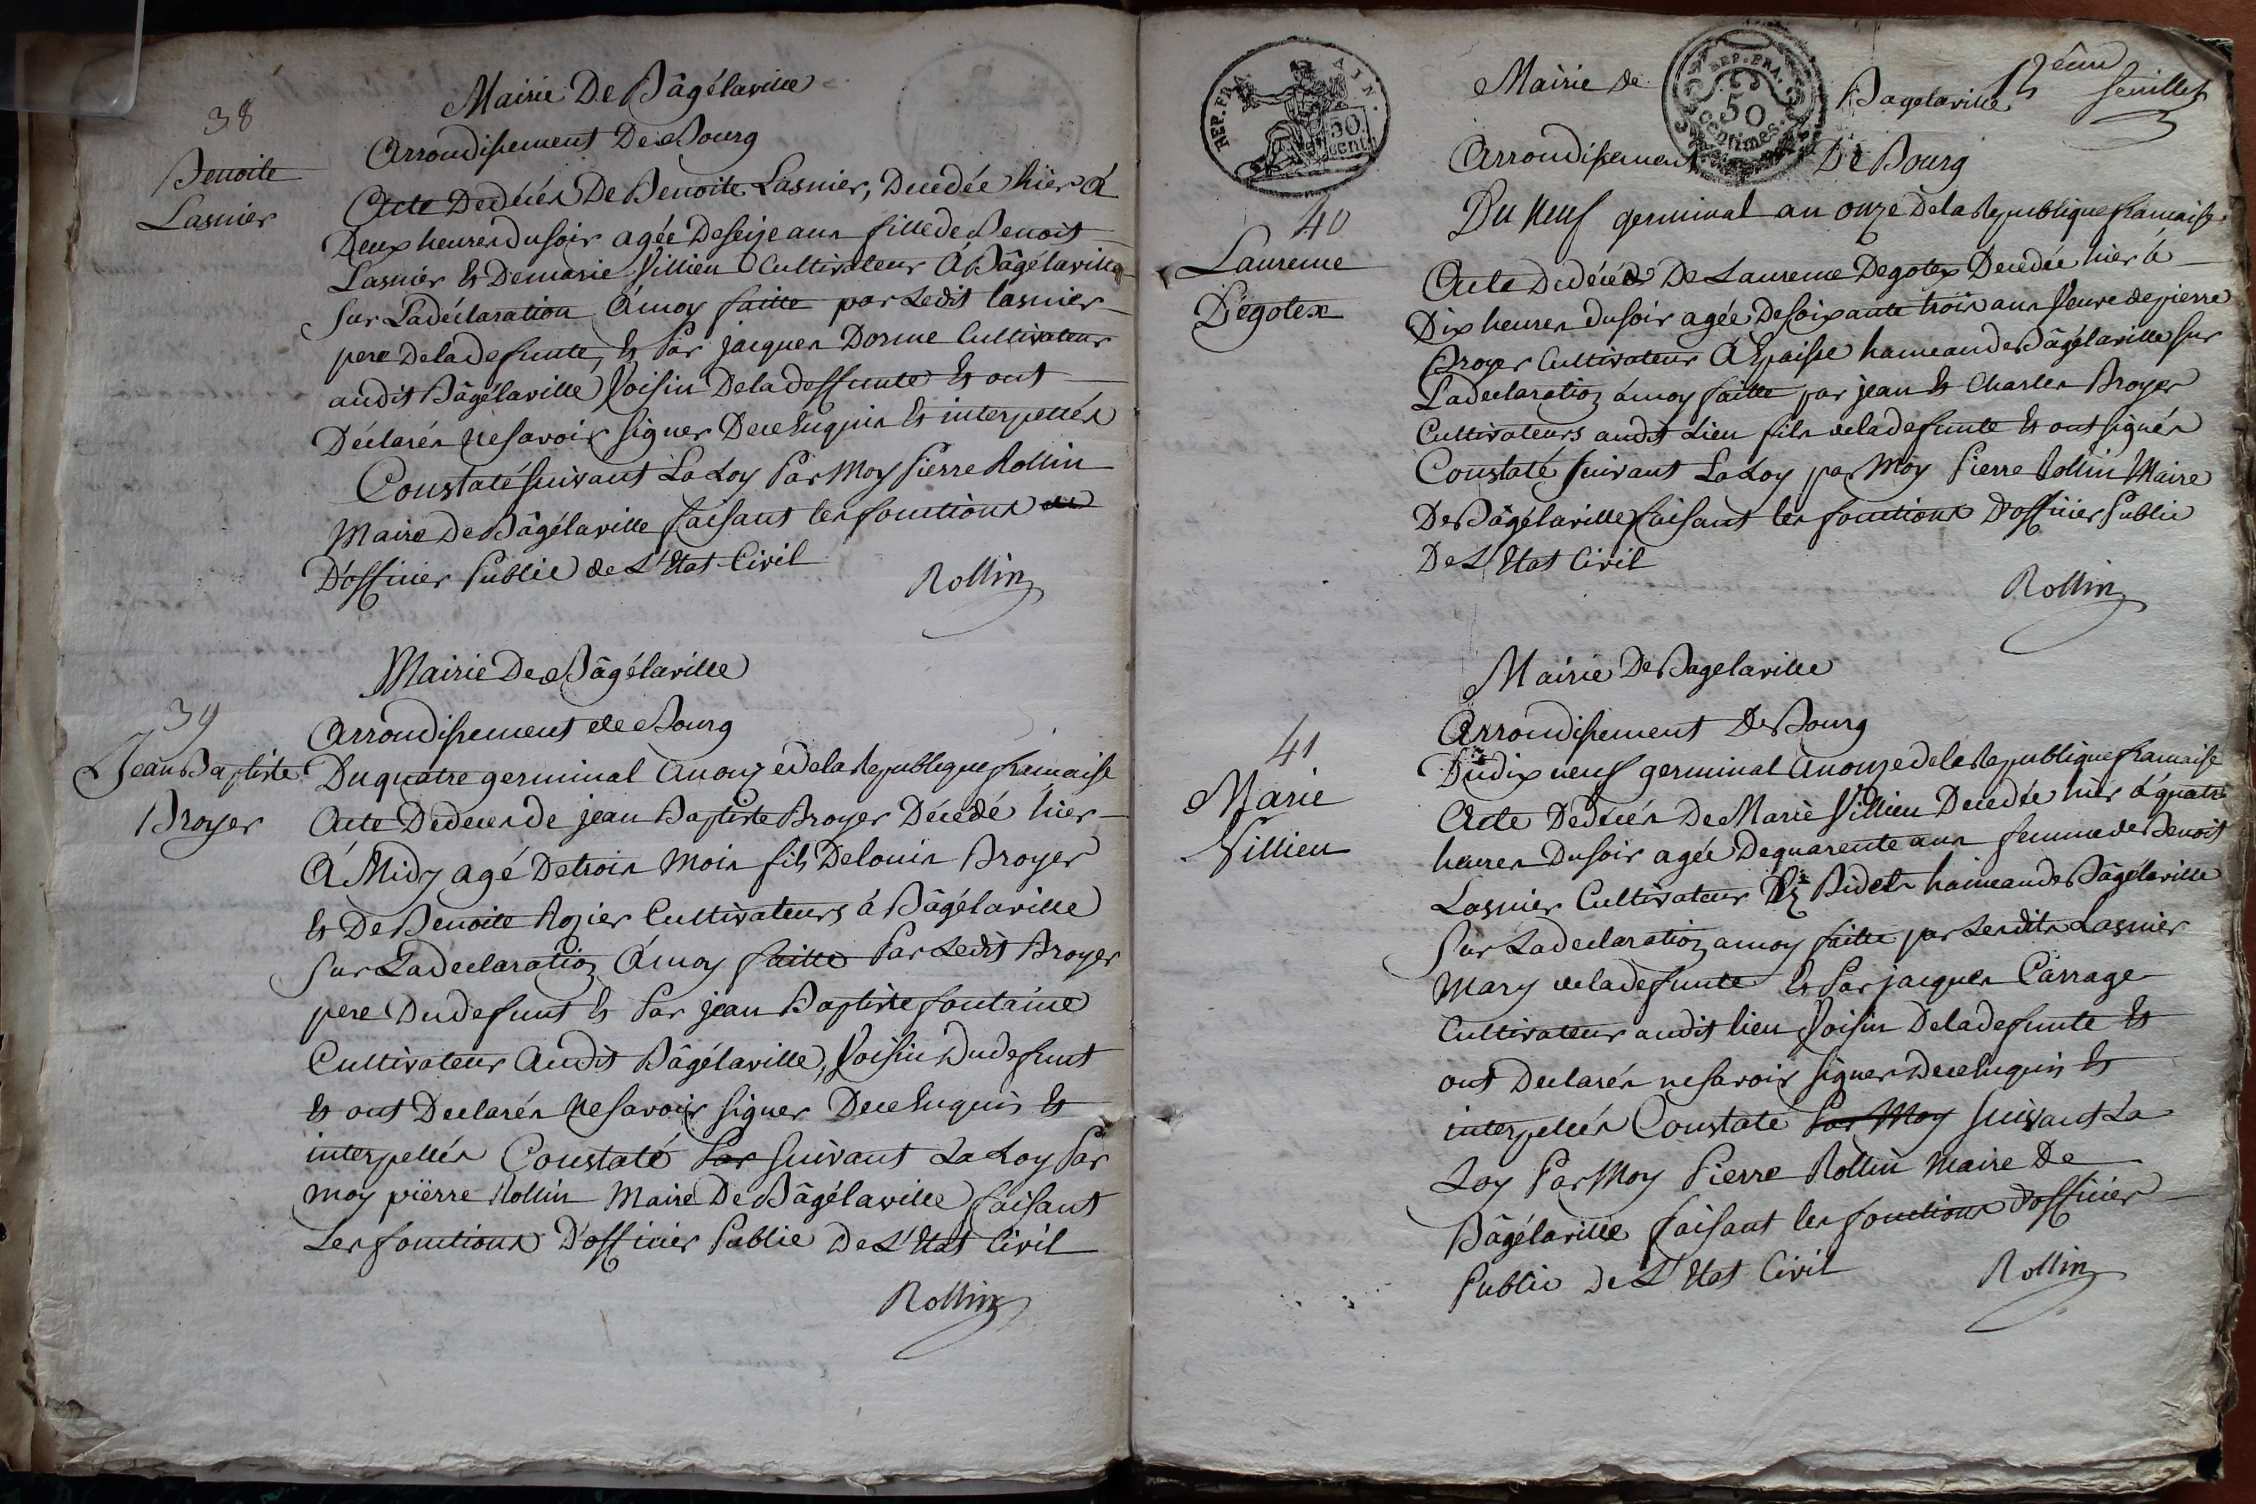 38
Benoite
Lasnier
Mairie De Bâgélaville
Arrondissement De Bourg
Acte Dedécés De Benoite Lasnier, Decedée hier à
Deux heures du soir agée De seize ans fille de Benoit
Lasnier et De marie Villien Cultivateur À Bâgélaville
sur La déclaration À moy faitte par Ledit lasnier
pere De la defunte, et Par jacques Dorme Cultivateur
audit Bâgélaville Voisin De la deffunte et ont
Déclarés ne savoir signer De ce Enquis et interpellés
Constaté suivant La Loy Par Moy Pierre Rollin
Maire De Bâgélaville faisant les fonctions
D'officier Public de L'Etat Civil
Rollin
39
Jean Baptiste
Broyer
Mairie De Bâgélaville
Arrondissement de Bourg
Du quatre germinal an onze de la Republique francaise
Acte De deces de jean Baptiste Broyer Décédé hier
À Midy agé De trois mois fils De louis Broyer
et De Benoite Rozier Cultivateurs à Bâgélaville
sur La declaration À moy faitte Par Ledit Broyer
pere Du defunt et Par jean Baptiste fontaine
Cultivateur audit Bâgélaville, Voisin Du defunt
et ont Declarés ne savoir signer De ce Enquis et
interpellés Constaté Par suivant La Loy Par
moy pierre Rollin Maire De Bâgélaville faisant
Les fonctions D'officier Public De L'Etat Civil
Rollin
REP. FRA. AIN.
50 cent.
REP. FRA.
50
centimes.
feuillet
Mairie de Bagelaville
Arrondissement De Bourg
40
Laurence
Degolex
Du neuf germinal an onze De la Republique francaise
Acte De décés De Laurence Degolex Decedée hier à
Dix heures du soir agée De soixante trois ans Veuve de pierre
Broyer Cultivateur À Epaisse hameau de Bâgélaville sur
La declaration à moy faitte par jean et Charles Broyer
Cultivateurs audit Lieu fils de la defunte et ont signés
Constaté suivant La Loy par Moy Pierre Rollin Maire
De Bâgélaville faisant les fonctions D'officier Public
De L'Etat Civil
Rollin
41
Marie
Villien
Mairie De Bagelaville
Arrondissement De Bourg
Du dix neuf germinal an onze de la Republique francaise
Acte De décés De Marie Villien Decedée hier à quatre
heures Du soir agée De quarente ans femme de Benoit
Lasnier Cultivateur Bidets hameau de Bâgélaville
sur La declaration a moy faitte par Lesdits Lasnier
Mary de la defunte et Par jacques Carrage
Cultivateur audit lieu Voisin De la defunte et
ont Declarés ne savoir signer De ce Enquis et
interpellés Constaté Par Moy suivant La
Loy Par Moy Pierre Rollin maire De
Bâgélaville faisant les fonctions D'officier
Public De L'Etat Civil
Rollin